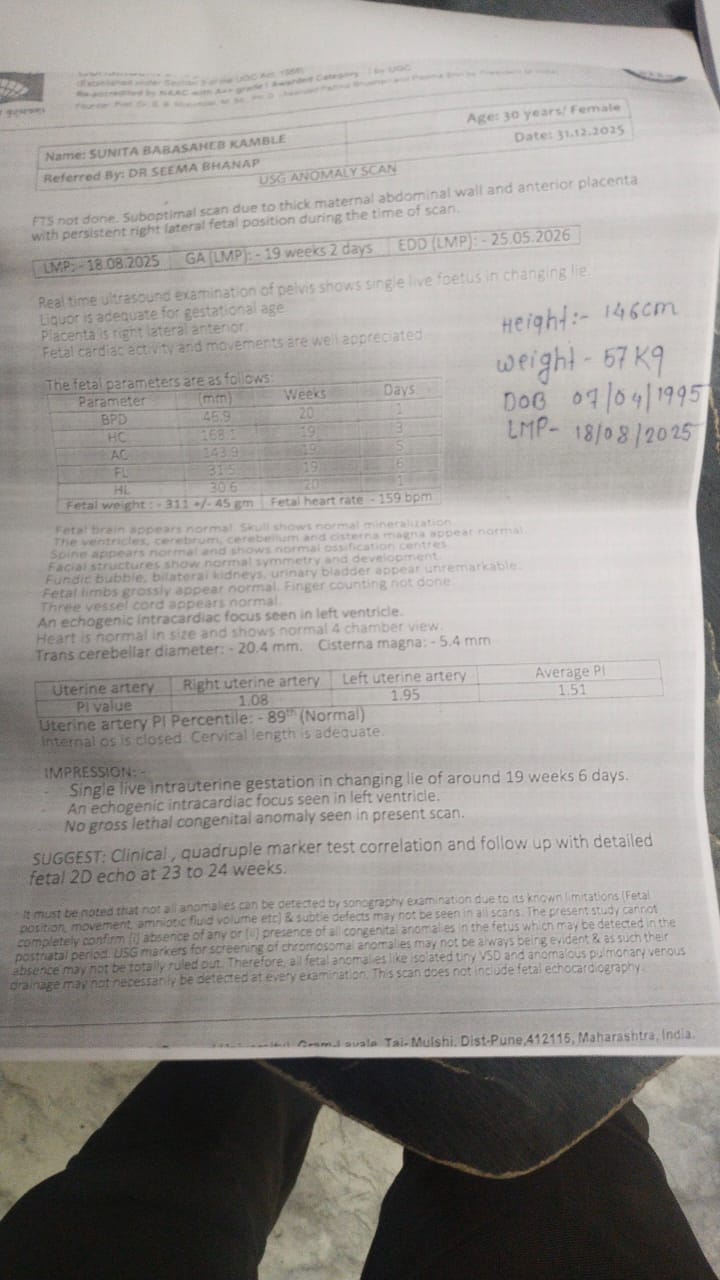 (Established under Section 3 of the UGC Act, 1956)
Re-accredited by NAAC with A++ grade | Awarded Category - I by UGC
Name: SUNITA BABASAHEB KAMBLE
Age: 30 years/ Female
Referred By: DR SEEMA BHANAP
Date: 31.12.2025
USG ANOMALY SCAN
FTS not done. Suboptimal scan due to thick maternal abdominal wall and anterior placenta
with persistent right lateral fetal position during the time of scan.
LMP: - 18.08.2025 GA (LMP): - 19 weeks 2 days EDD (LMP): - 25.05.2026
Real time ultrasound examination of pelvis shows single live foetus in changing lie.
Liquor is adequate for gestational age.
Placenta is right lateral anterior.
Fetal cardiac activity and movements are well appreciated.
Height:- 146cm
weight - 57 Kg
DOB 07/04/1995
LMP- 18/08/2025
The fetal parameters are as follows:
Parameter (mm) Weeks Days
BPD 46.9 20 1
HC 168.1 19 3
AC 143.9 19 5
FL 31.5 19 6
HL 30.6 20 1
Fetal weight : - 311 +/- 45 gm Fetal heart rate - 159 bpm
Fetal brain appears normal. Skull shows normal mineralization.
The ventricles, cerebrum, cerebellum and cisterna magna appear normal.
Spine appears normal and shows normal ossification centres.
Facial structures show normal symmetry and development.
Fundic bubble, bilateral kidneys, urinary bladder appear unremarkable.
Fetal limbs grossly appear normal. Finger counting not done.
Three vessel cord appears normal.
An echogenic intracardiac focus seen in left ventricle.
Heart is normal in size and shows normal 4 chamber view.
Trans cerebellar diameter: - 20.4 mm. Cisterna magna: - 5.4 mm
Uterine artery Right uterine artery Left uterine artery Average PI
PI value 1.08 1.95 1.51
Uterine artery PI Percentile: - 89th (Normal)
Internal os is closed. Cervical length is adequate.
IMPRESSION: -
- Single live intrauterine gestation in changing lie of around 19 weeks 6 days.
- An echogenic intracardiac focus seen in left ventricle.
- No gross lethal congenital anomaly seen in present scan.
SUGGEST: Clinical , quadruple marker test correlation and follow up with detailed
fetal 2D echo at 23 to 24 weeks.
It must be noted that not all anomalies can be detected by sonography examination due to its known limitations (Fetal
position, movement, amniotic fluid volume etc) & subtle defects may not be seen in all scans. The present study cannot
completely confirm (i) absence of any or (ii) presence of all congenital anomalies in the fetus which may be detected in the
postnatal period. USG markers for screening of chromosomal anomalies may not be always being evident & as such their
absence may not be totally ruled out. Therefore, all fetal anomalies like isolated tiny VSD and anomalous pulmonary venous
drainage may not necessarily be detected at every examination. This scan does not include fetal echocardiography.
Tal- Mulshi, Dist-Pune,412115, Maharashtra, India.